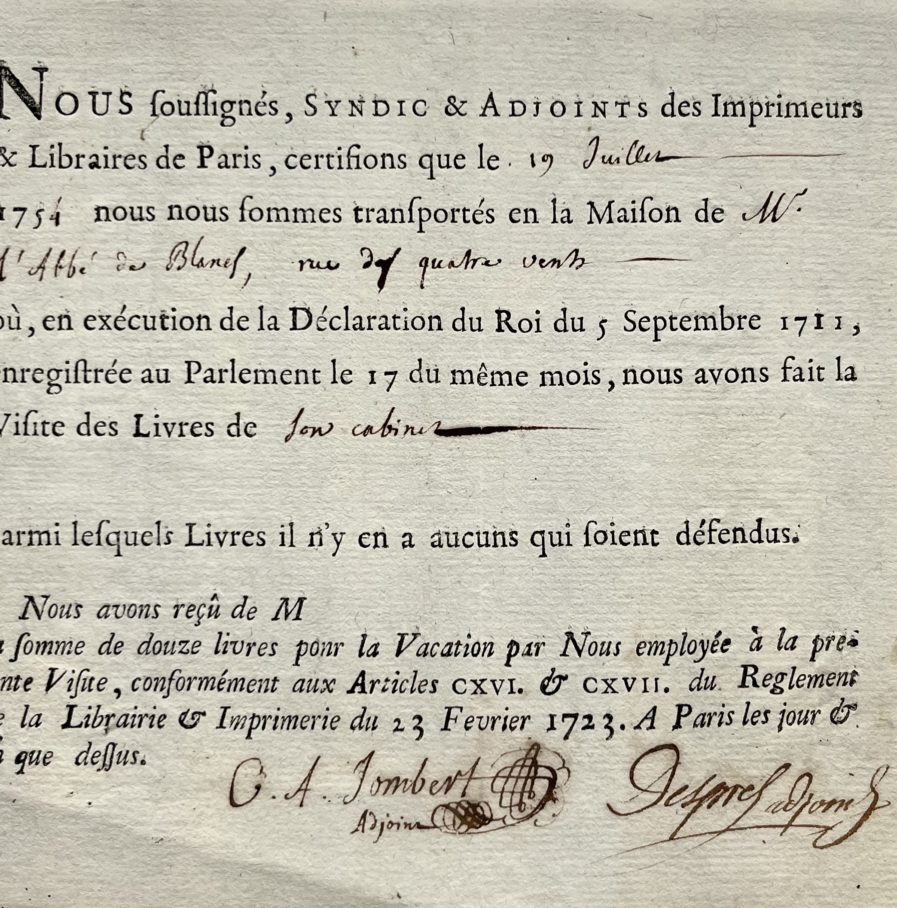 NOUS souſſignés, SYNDIC & ADJOINTS des Imprimeurs
& Libraires de Paris, certifions que le 19 Juillet
1754 nous nous ſommes tranſportés en la Maiſon de Mr.
l'Abbé de Blanes, rue des quatre vents
où, en exécution de la Déclaration du Roi du 5 Septembre 1711,
enregiſtrée au Parlement le 17 du même mois, nous avons fait la
Viſite des Livres de son cabinet
armi leſquels Livres il n'y en a aucuns qui ſoient défendus.
Nous avons reçû de M
a ſomme de douze livres ponr la Vacation par Nous employée à la pre-
nte Viſite, conformément aux Articles CXVI. & CXVII. du Reglement
e la Librairie & Imprimerie du 23 Fevrier 1723. A Paris les jour &
n que deſſus.
C. A. Jombert Desprez adjoint
Adjoint